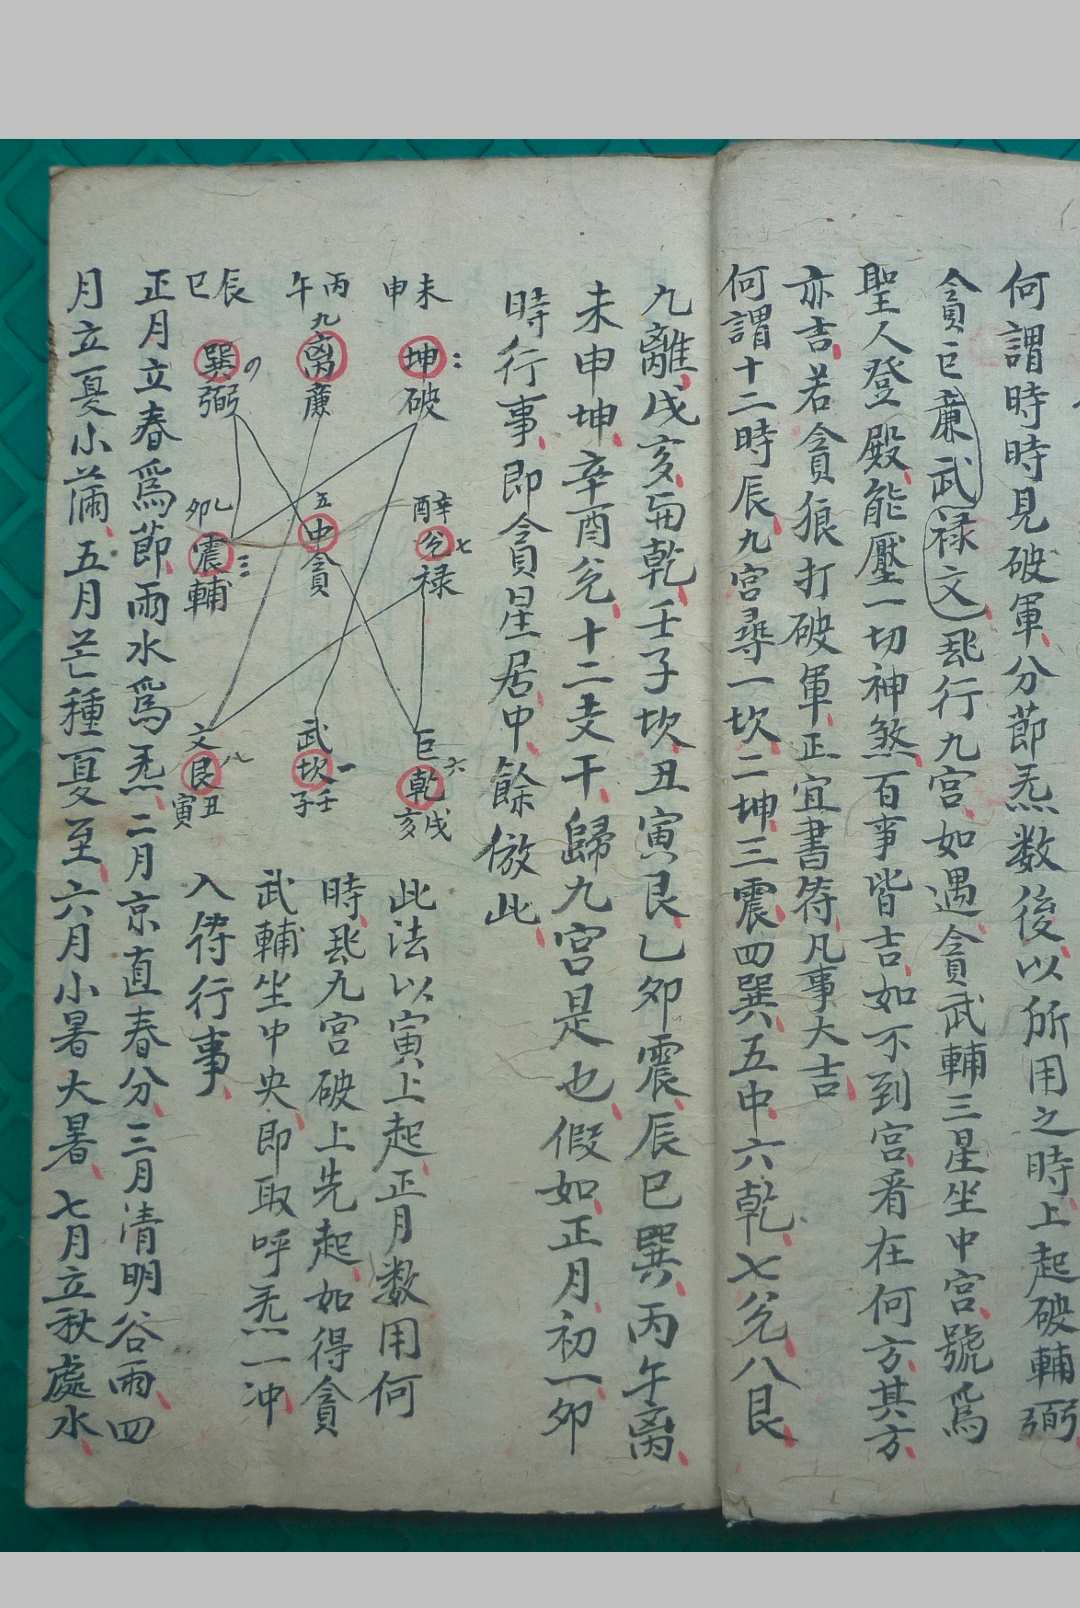 何謂時時見破軍分節炁数後以所用之時上起破輔弼
貪巨廉武禄文飛行九宮如遇貪武輔三星坐中宮號爲
聖人登殿能壓一切神煞百事皆吉如不到宮看在何方其方
亦吉若貪狼打破軍正宜書符凡事大吉
何謂十二時辰九宮尋一坎二坤三震四巽五中六乾七兌八艮
九離戌亥乾壬子坎丑寅艮乙卯震辰巳巽丙午离
未申坤辛酉兌十二支干歸九宮是也假如正月初一卯
時行事即貪星居中餘倣此
未申
坤
破
丙午
九
离
廉
辰巳
巽
弼
辛酉
兌 七
禄
五
中
貪
乙卯
震 三
輔
巨
乾 六
戌亥
武
坎 一
壬子
文
艮 八
丑寅
此法以寅上起正月数用何
時飛九宮破上先起如得貪
武輔坐中央即取呼炁一冲
入符行事
正月立春爲節雨水爲炁二月京直春分三月清明谷雨四
月立夏小滿五月芒種夏至六月小暑大暑七月立秋處水